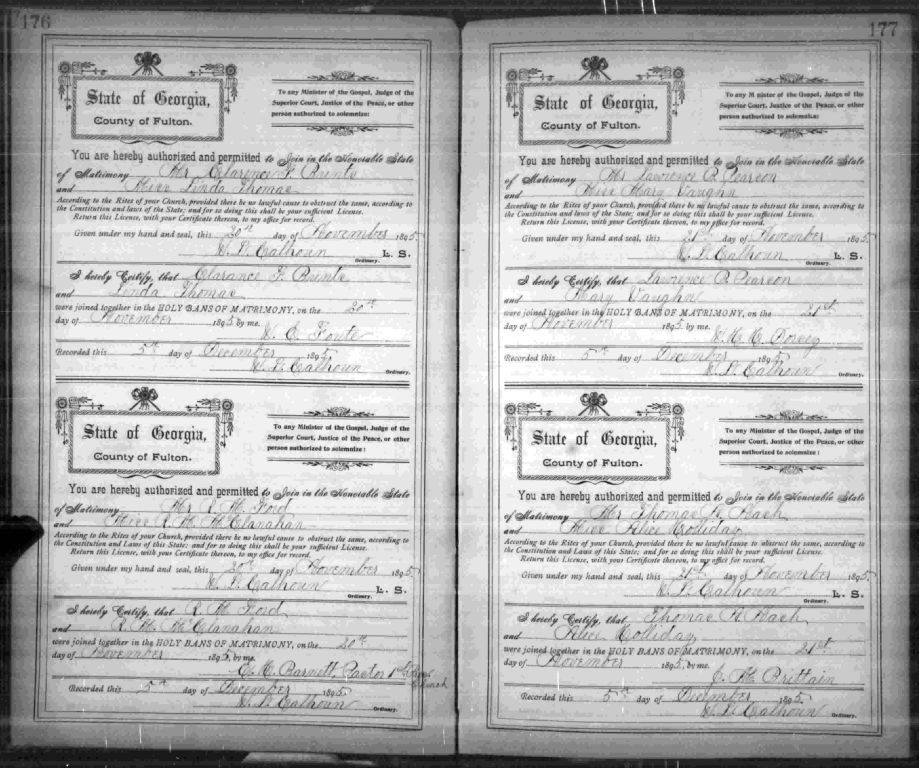 176
State of Georgia,
County of Fulton.
To any Minister of the Gospel, Judge of the
Superior Court, Justice of the Peace, or other
person authorized to solemnize:
You are hereby authorized and permitted to Join in the Honorable State
of Matrimony Mr Clarence F.
and Miss Linda Thomas
According to the Rites of your Church, provided there be no lawful cause to obstruct the same, according to
the Constitution and laws of the State; and for so doing this shall be your sufficient License.
Return this License, with your Certificate thereon, to my office for record.
Given under my hand and seal, this 20th day of November 1895.
W. L. Calhoun L. S.
Ordinary.
I hereby Certify, that Clarance F.
and Linda Thomas
were joined together in the HOLY BANS OF MATRIMONY, on the 20th
day of November 1895 by me.
Recorded this 5th day of December 1895
W. L. Calhoun
Ordinary.
State of Georgia,
County of Fulton.
To any Minister of the Gospel, Judge of the
Superior Court, Justice of the Peace, or other
person authorized to solemnize:
You are hereby authorized and permitted to Join in the Honorable State
of Matrimony Mr R. M. Ford
and Miss R. M. McClanahan
According to the Rites of your Church, provided there be no lawful cause to obstruct the same, according to the
Constitution and Laws of this State; and for so doing this shall be your sufficient License.
Return this License, with your Certificate thereon, to my office for record.
Given under my hand and seal, this 20th day of November 1895.
W. L. Calhoun L. S.
Ordinary.
I hereby Certify, that R. M. Ford
and R. M. McClanahan
were joined together in the HOLY BANS OF MATRIMONY, on the 20th
day of November 1895, by me.
Barnett, Pastor 1st Church
Recorded this 5th day of December 1895.
W. L. Calhoun
Ordinary.
177
State of Georgia,
County of Fulton.
To any Minister of the Gospel, Judge of the
Superior Court, Justice of the Peace, or other
person authorized to solemnize:
You are hereby authorized and permitted to Join in the Honorable State
of Matrimony Mr Lawrence P. Pearson
and Miss Mary Vaughn
According to the Rites of your Church, provided there be no lawful cause to obstruct the same, according to
the Constitution and laws of the State; and for so doing this shall be your sufficient License.
Return this License, with your Certificate thereon, to my office for record.
Given under my hand and seal, this 21st day of November 1895.
W. L. Calhoun L. S.
Ordinary.
I hereby Certify, that Lawrence P. Pearson
and Mary Vaughn
were joined together in the HOLY BANS OF MATRIMONY, on the 21st
day of November 1895 by me.
Recorded this 5th day of December 1895
W. L. Calhoun
Ordinary.
State of Georgia,
County of Fulton.
To any Minister of the Gospel, Judge of the
Superior Court, Justice of the Peace, or other
person authorized to solemnize:
You are hereby authorized and permitted to Join in the Honorable State
of Matrimony Mr Thomas
and Miss Alice Holliday
According to the Rites of your Church, provided there be no lawful cause to obstruct the same, according to the
Constitution and Laws of this State; and for so doing this shall be your sufficient License.
Return this License, with your Certificate thereon, to my office for record.
Given under my hand and seal, this 21st day of November 1895.
W. L. Calhoun L. S.
Ordinary.
I hereby Certify, that Thomas
and Alice Holliday
were joined together in the HOLY BANS OF MATRIMONY, on the 21st
day of November 1895, by me.
J. H. Brittain
Recorded this 5th day of December 1895.
W. L. Calhoun
Ordinary.